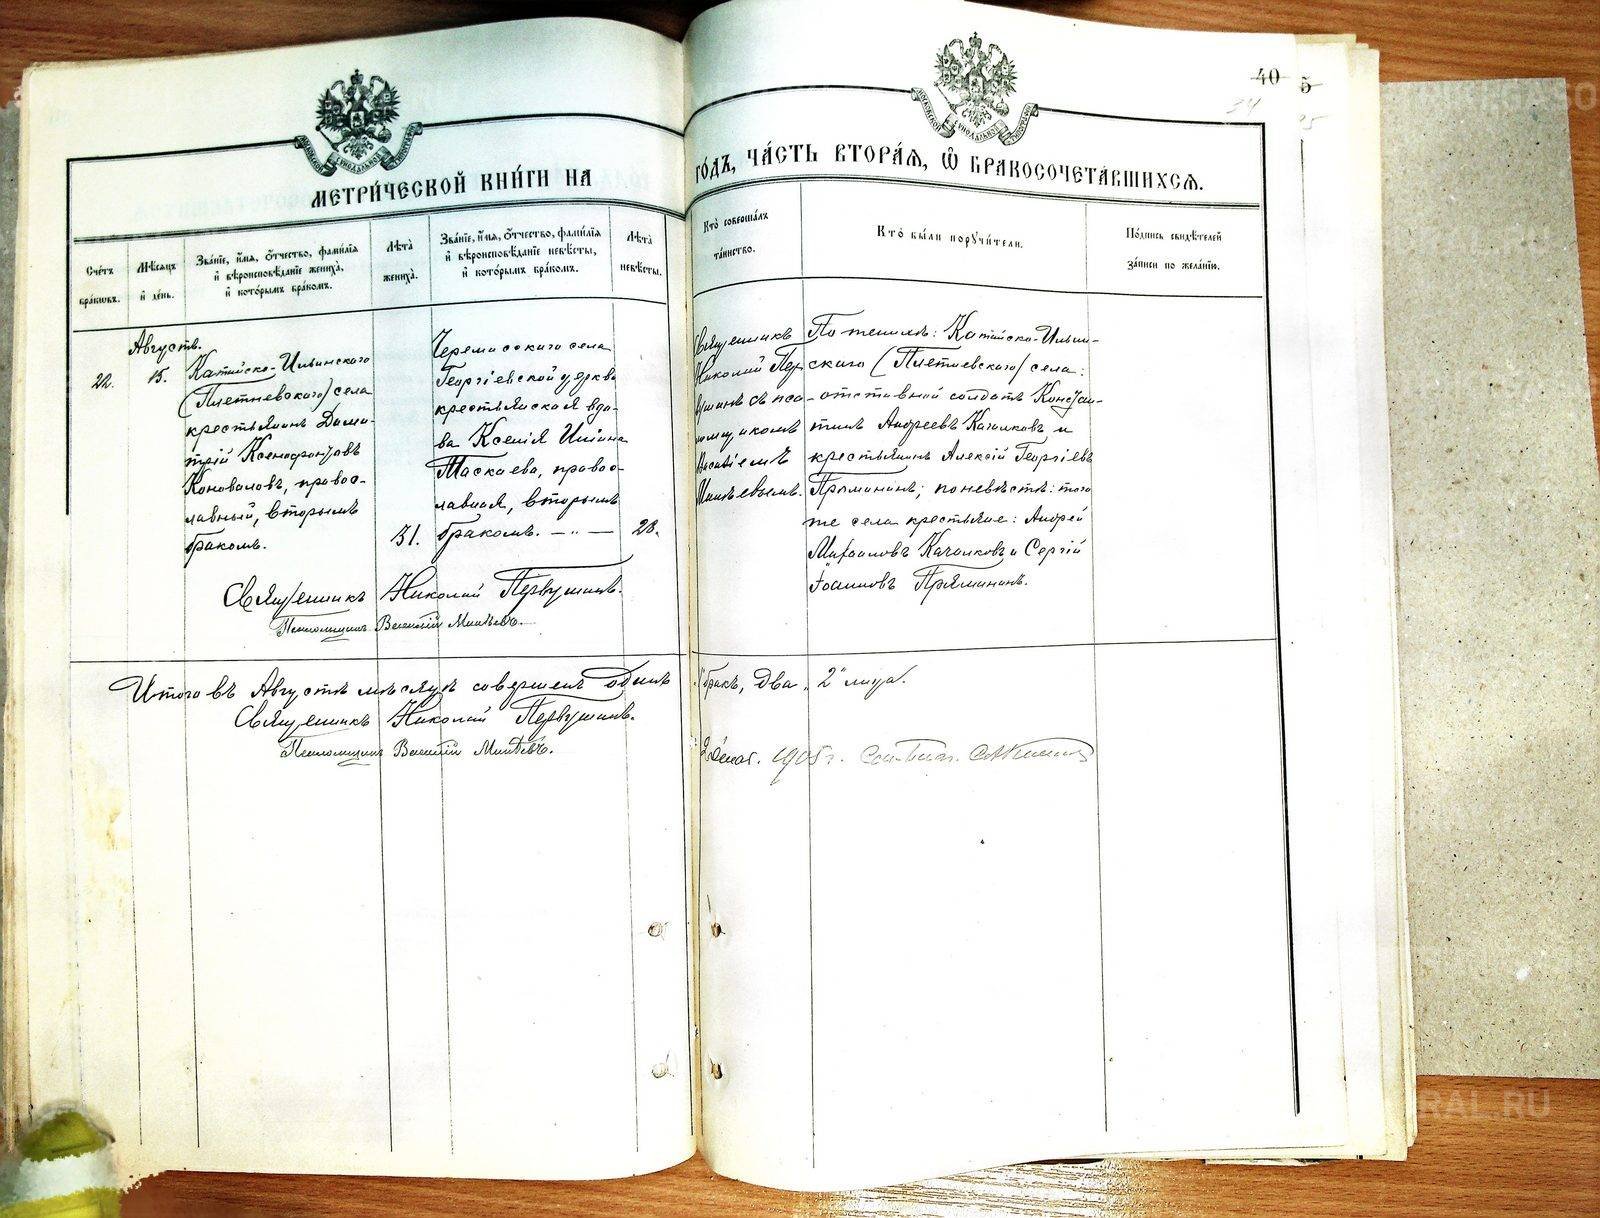 40 5
34
МЕТРИ́ЧЕСКОЙ КНИ́ГИ НА
ГО́ДЪ, ЧА́СТЬ ВТОРА́Я, Ѽ БРАКОСОЧЕТА́ВШИХСЯ.
Сче́тъ бра́кѡвъ.
Мѣ́сяцъ и҆ де́нь.
Зва́нїе, и҆́мѧ, ѻ҆́тчество, фами́лїѧ
и҆ вѣроисповѣ́данїе жениха̀,
и҆ кото́рымъ бра́комъ.
Лѣ́та жениха̀.
Зва́нїе, и҆́мѧ, ѻ҆́тчество, фами́лїѧ
и҆ вѣроисповѣ́данїе невѣ́сты,
и҆ кото́рымъ бра́комъ.
Лѣ́та невѣ́сты.
Кто̀ соверша́лъ
та́инство.
Кто̀ бы́ли пороучи́тели.
По́дпись свидѣ́телей
за́писи по жела́нїю.
22.
Августъ.
15.
Катайско-Ильинскаго
(Плетневскаго) села
крестьянинъ Дими-
трій Ксенофонтовъ
Коноваловъ, правос-
лавный, вторымъ
бракомъ.
31.
Черемисскаго села
Георгіевской церкви
крестьянская вдо-
ва Ксенія
Таскаева, право-
лавная, вторымъ
бракомъ. — „ —
28.
Священникъ
Николай Пер-
вушинъ съ пса-
ломщикомъ
Василіемъ
По женихѣ: Катайско-Ильин-
скаго (Плетневскаго) села:
отставной солдатъ Констан-
тинъ Андреевъ Качалковъ и
крестьянинъ Алексій Георгіевъ
Пряминин; по невѣстѣ: того
же села крестьяне: Андрей
Михаиловъ Качалковъ и Сергій
Іоанновъ Пряминин.
Священникъ Николай Первушинъ.
Псаломщикъ Василій
Итого въ Августѣ мѣсяцѣ совершенъ одинъ „1" бракъ, два „2" лица.
Священникъ Николай Первушинъ.
Псаломщикъ Василій
1905 г.
RAL.RU